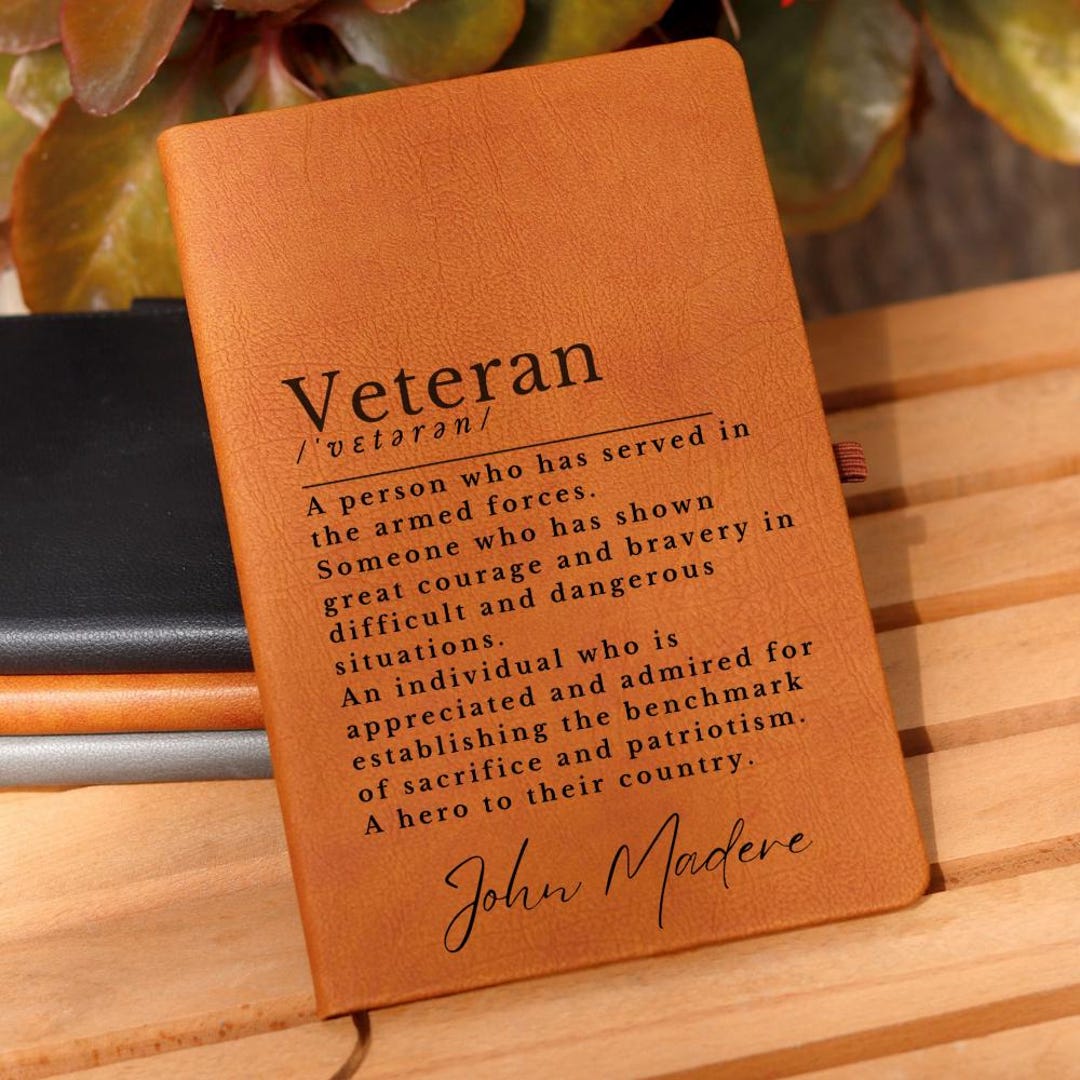 Veteran
/'ʋɛtərən/
A person who has served in
the armed forces.
Someone who has shown
great courage and bravery in
difficult and dangerous
situations.
An individual who is
appreciated and admired for
establishing the benchmark
of sacrifice and patriotism.
A hero to their country.
John Madere